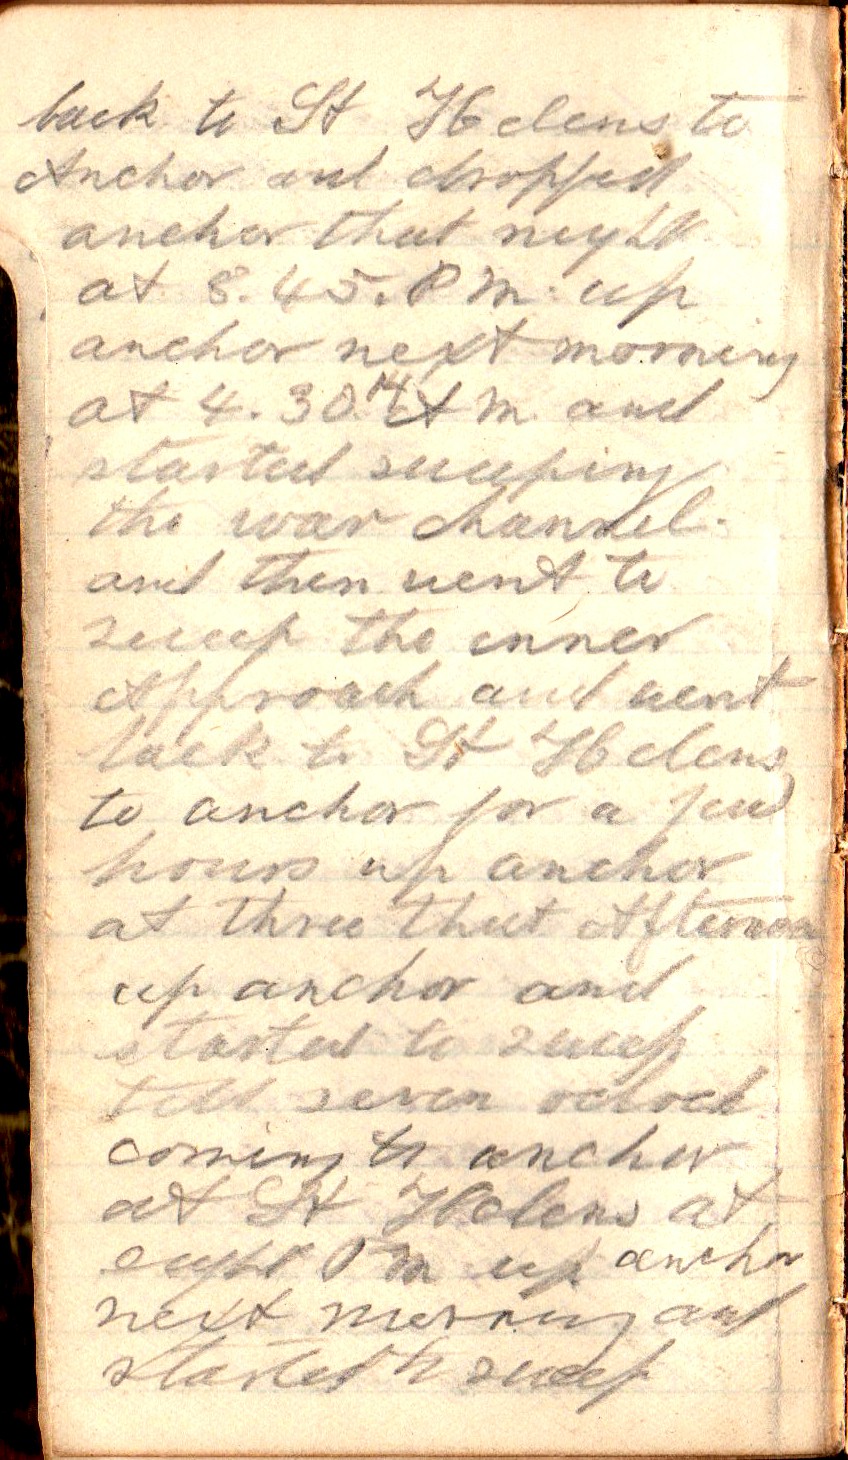 back to St Helens to
Anchor and dropped
anchor that night
at 8.45. P M. up
anchor next morning
at 4.30 A M and
started sweeping
the war channel.
and then went to
sweep the inner
Approach and went
back to St Helens
to anchor for a few
hours up anchor
at three that Afternoon
up anchor and
started to sweep
till seven oclock
coming to anchor
at St Helens at
eight P M up anchor
next morning and
started to sweep